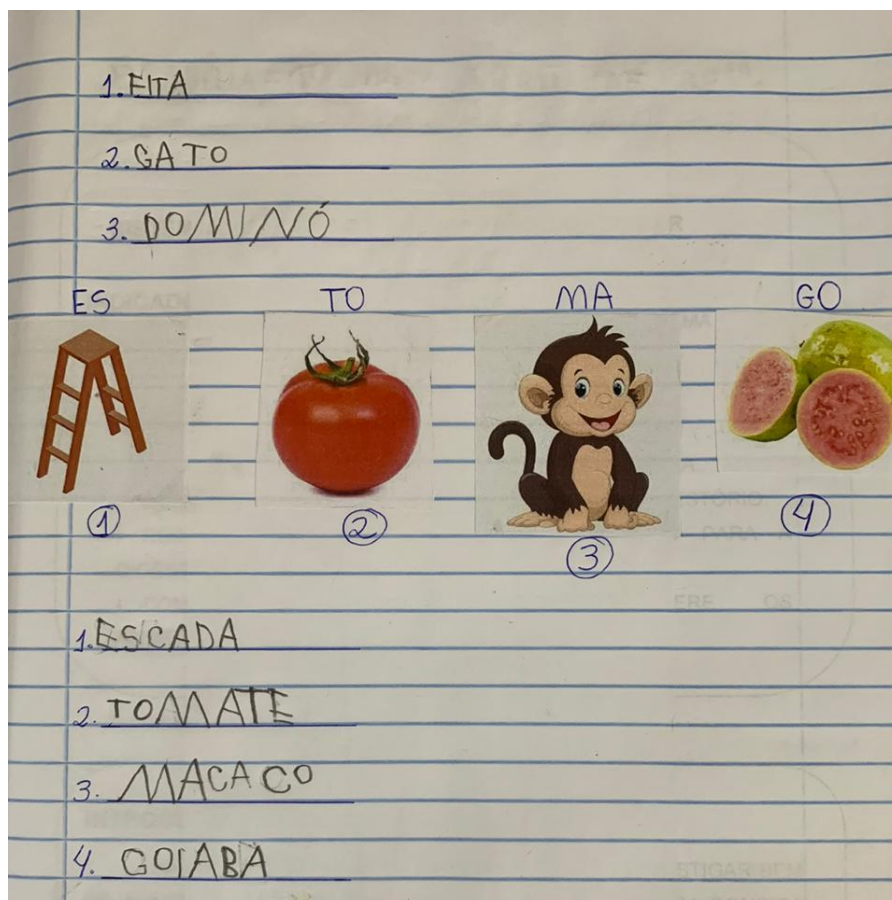 1. FITA
2. GATO
3. DOMINÓ
ES TO MA GO
1 2 3 4
1. ESCADA
2. TOMATE
3. MACACO
4. GOIABA